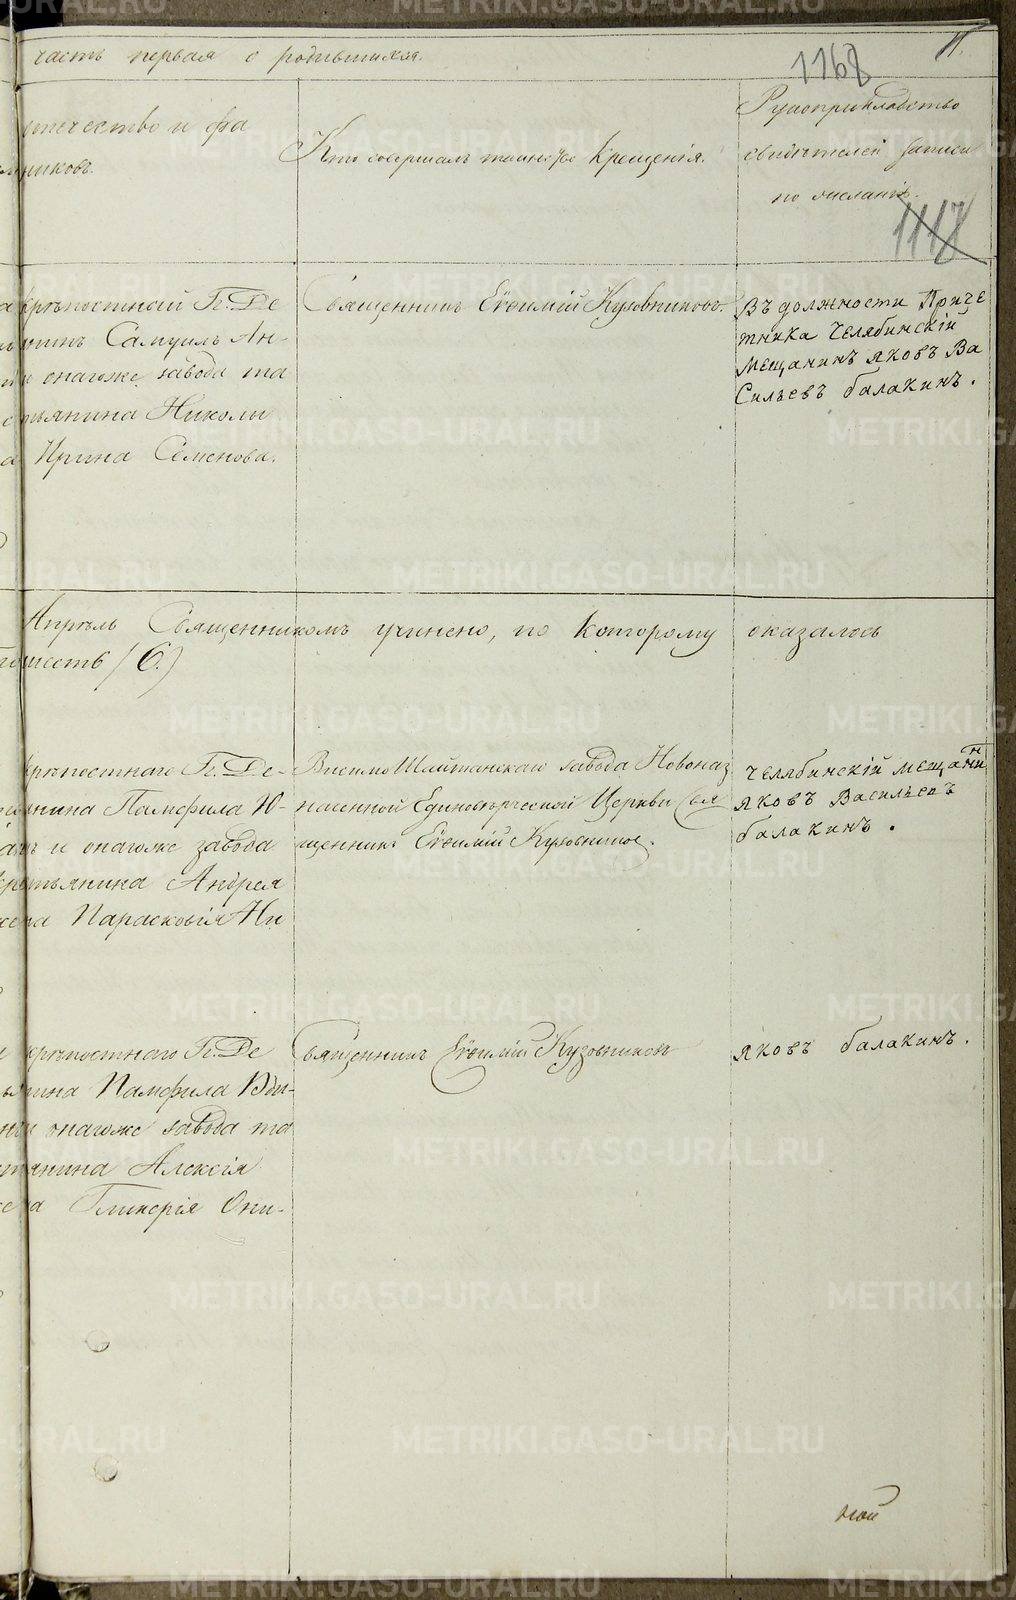 часть первая о родившихся.
1168
11.
отчество и фа
никовъ.
Кто совершалъ таинство Крещенія.
Рукоприкладство
свидѣтелей записи
по желанію.
1117
крѣпостный Г. Де
Самуилъ Ан-
онагоже завода та
Николи
Ирина Семенова.
Священникъ Евѳимій Кузовниковъ.
Въ должности Приче
тника Челябинскій
Мещанинъ Яковъ Ва
Сильевъ балакинъ.
Апрѣль Священникомъ учинено, по которому оказалось
шесть (6.)
крѣпостнаго Г. Де-
Памфила Ю-
и онагоже завода
Андрея
Параскович Ни
Висимо Шайтанскаго завода Новоназ
наченной Единовѣрческой Церкви Свя
щенникъ Евѳимій Кузовниковъ.
Челябинскій мещанинъ
Яковъ Васильевъ
балакинъ.
крѣпостнаго Г. Де
Памфила Юди-
онагоже завода та
Алексія
Гликерія Они-
Священникъ Евѳимій Кузовниковъ
Яковъ балакинъ.
METRIKI.GASO-URAL.RU